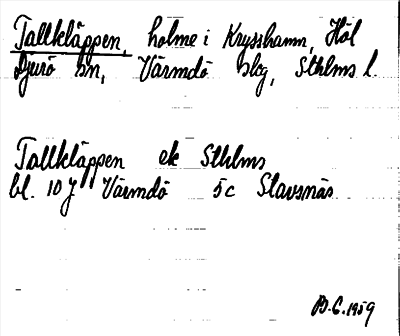 Tallkläppen, holme i Krysshamn, Höl
Djurö sn, Värmdö skg, Sthlms l.
Tallkläppen ek Sthlms
bl. 10 J Värmdö 5c Stavsnäs
B.C. 1959